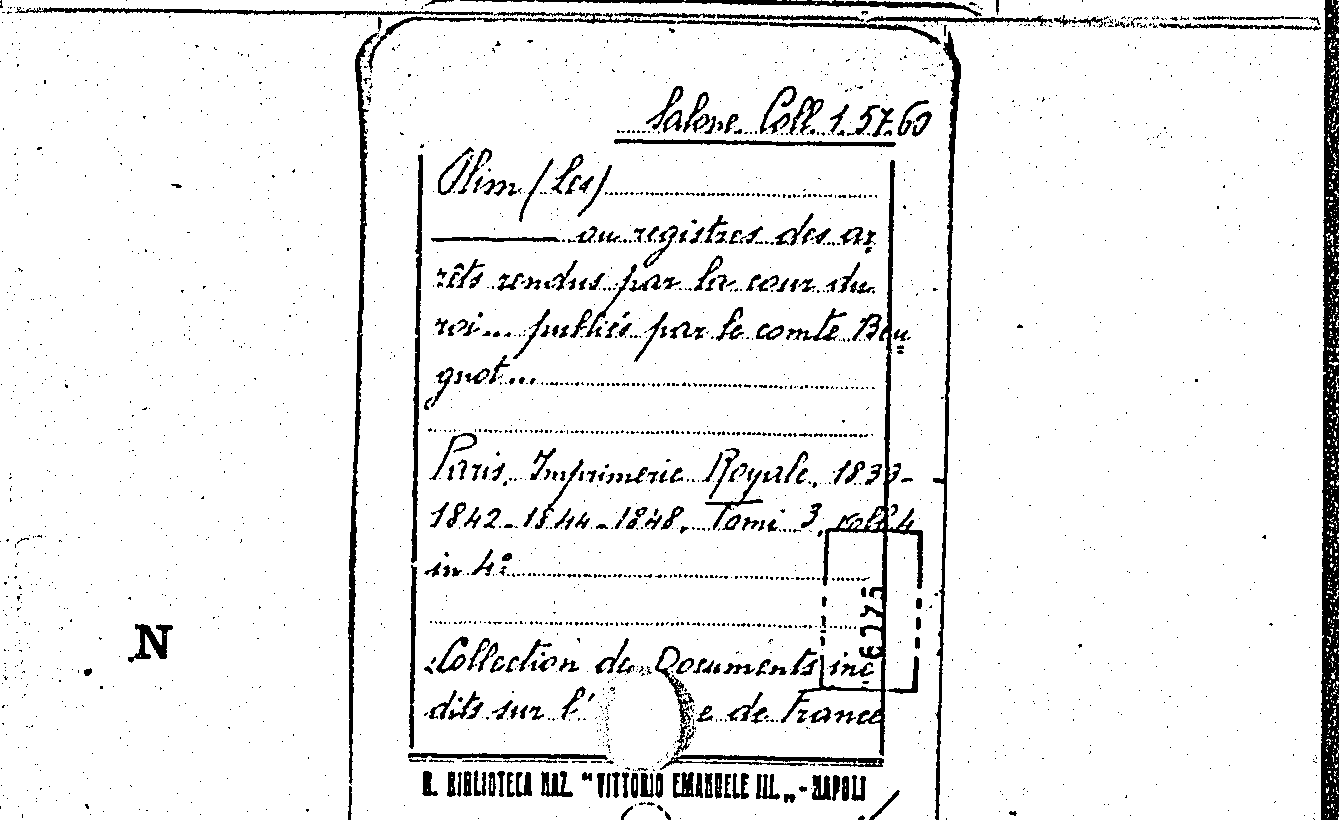 Salone Coll. 1.57.60
Olim (Les)
ou registres des ar
rêts rendus par la cour du
roi... publiés par le comte Beu
gnot...
Paris. Imprimerie Royale. 1839-
1842-1844-1848. Tomi 3,
in 4º
6275
N
Collection de Documents iné
dits sur l' e de France
R. BIBLIOTECA NAZ. "VITTORIO EMANUELE III." - NAPOLI